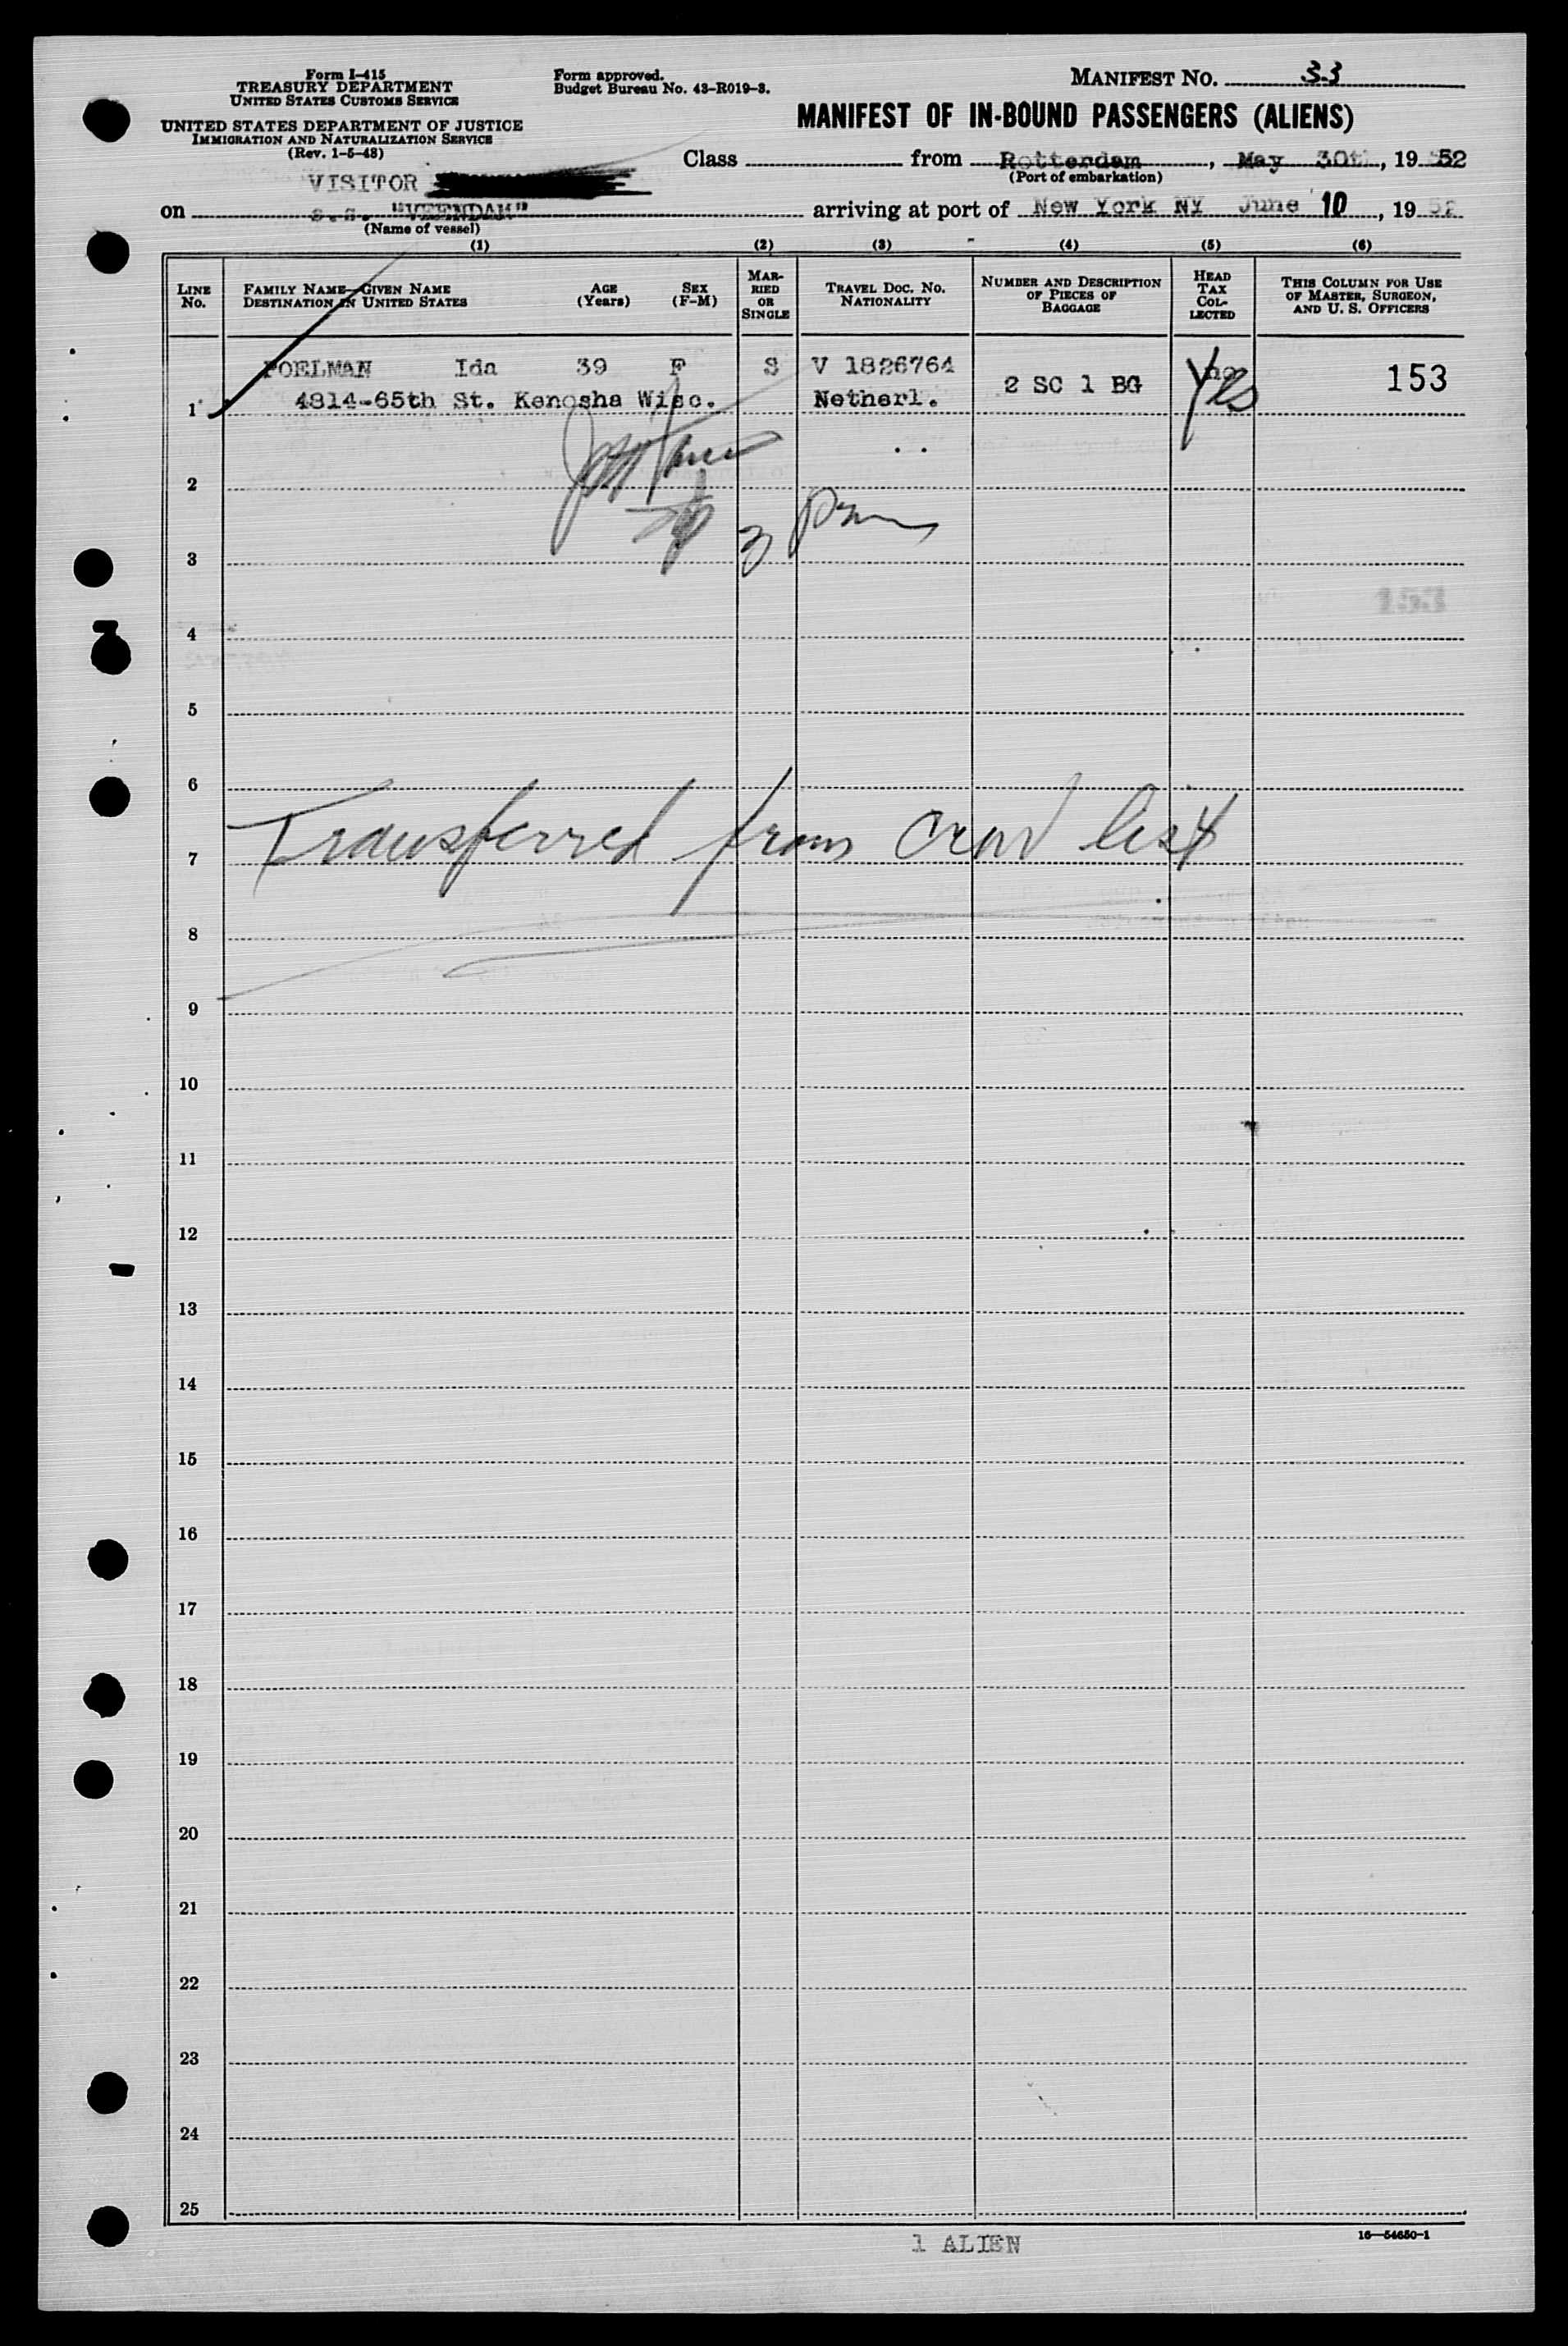 Form I-415
TREASURY DEPARTMENT
UNITED STATES CUSTOMS SERVICE
UNITED STATES DEPARTMENT OF JUSTICE
IMMIGRATION AND NATURALIZATION SERVICE
(Rev. 1-5-48)
Form approved.
Budget Bureau No. 43-R019-3.
MANIFEST NO. 33
MANIFEST OF IN-BOUND PASSENGERS (ALIENS)
Class from Rotterdam, May 30th, 1952
(Port of embarkation)
VISITOR
on s.s. "VEENDAM" arriving at port of New York NY June 10, 1952
(Name of vessel)
(1) (2) (3) (4) (5) (6)
LINE NO.
FAMILY NAME—GIVEN NAME
DESTINATION IN UNITED STATES
AGE (Years)
SEX (F-M)
MARRIED OR SINGLE
TRAVEL DOC. NO.
NATIONALITY
NUMBER AND DESCRIPTION OF PIECES OF BAGGAGE
HEAD TAX COLLECTED
THIS COLUMN FOR USE OF MASTER, SURGEON, AND U. S. OFFICERS
POELMAN Ida 39 F S V 1826764
1 4814-65th St. Kenosha Wisc. Netherl. 2 SC 1 BG no Yes 153
2
3
4
5
6
7 Transferred from crew list
8
9
10
11
12
13
14
15
16
17
18
19
20
21
22
23
24
25
1 ALIEN
16—54650-1